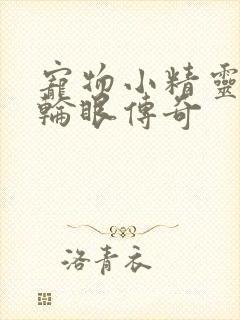 寵物小精靈
輪眼傳奇
洛青衣